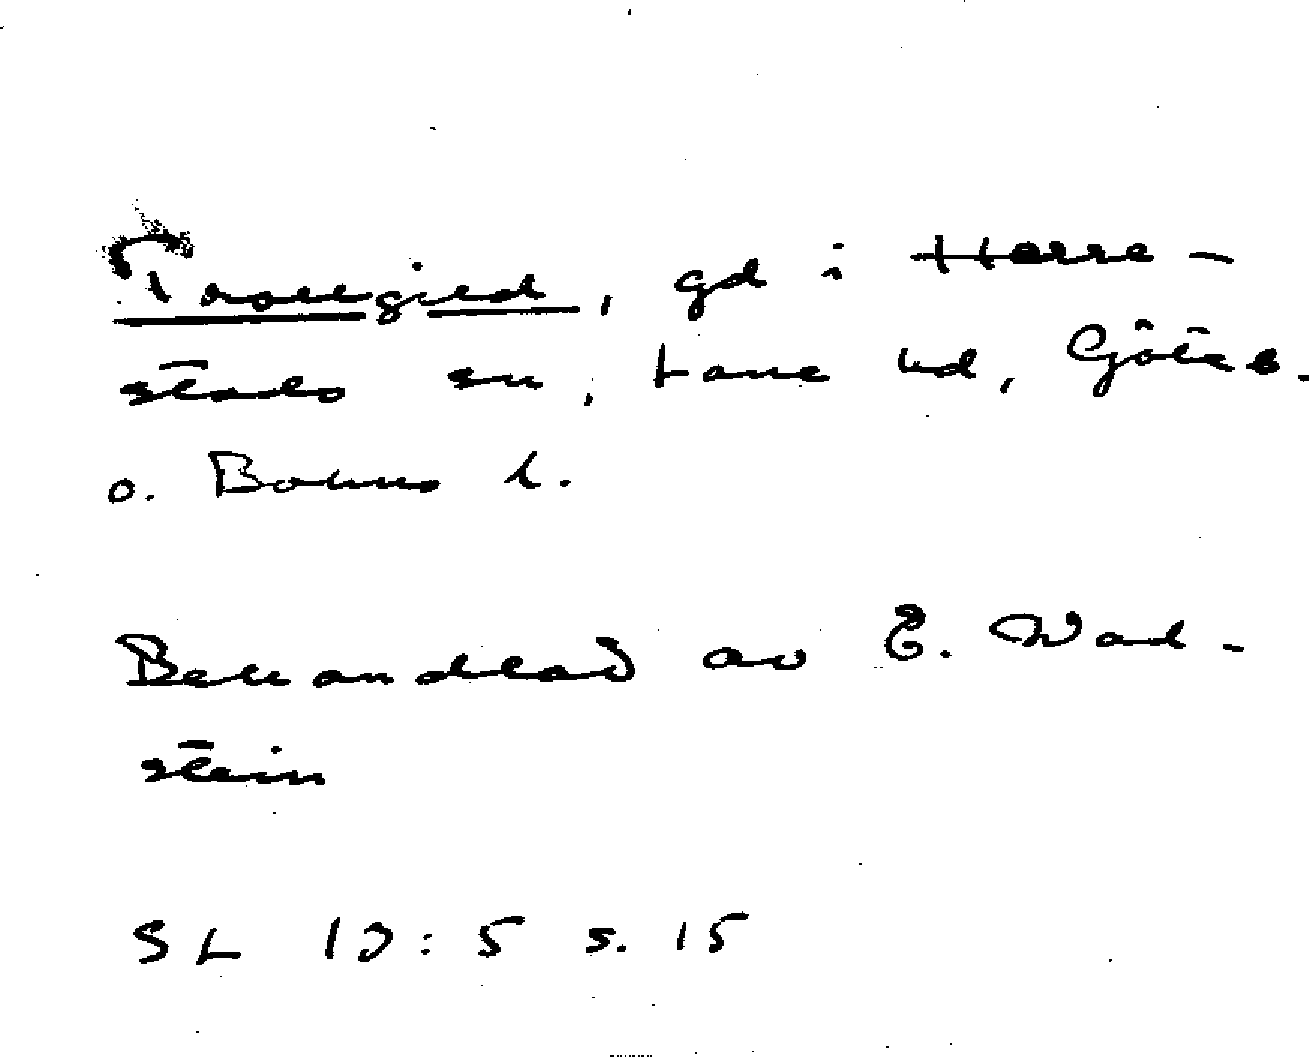 Trollgied, gd i Herre-
stads sn, Lane hd, Göteb.
o. Bohus l.
Behandlad av E. Wad-
stein
SL 13:5 s. 15